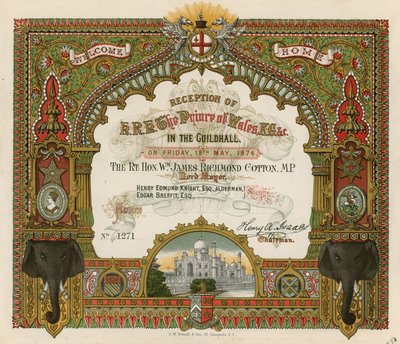 WELCOME
HOME
RECEPTION OF
H.R.H. The Prince of Wales, K.G. &c.
IN THE GUILDHALL.
ON FRIDAY, 19TH MAY, 1876.
THE RT. HON. WM. JAMES RICHMOND COTTON, M.P.
Lord Mayor.
HENRY EDMUND KNIGHT, ESQ. ALDERMAN,
EDGAR BREFFIT, ESQ.
No 1271
Henry A. Isaacs
Chairman.